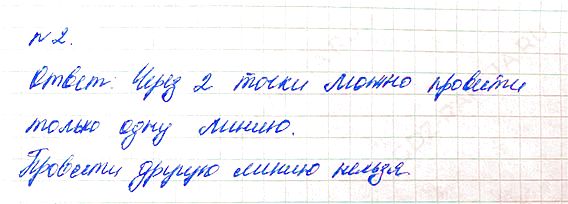 №2.
Ответ: Через 2 точки можно провести
только одну линию.
Провести другую линию нельзя